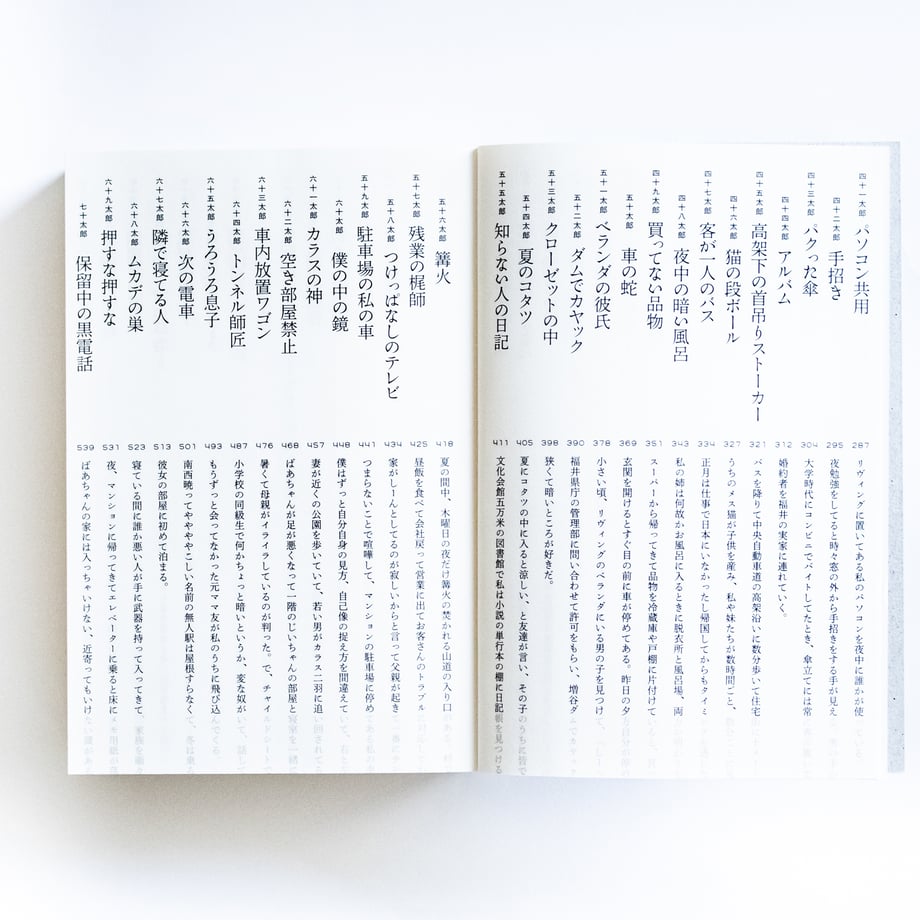 四十一太郎 パソコン共用 287 リヴィングに置いてある私のパソコンを夜中に誰かが使っている
四十二太郎 手招き 295 夜勉強をしてると時々窓の外から手招きをする手が見え
四十三太郎 パクった傘 304 大学時代にコンビニでバイトしてたとき、傘立てには常
四十四太郎 アルバム 312 婚約者を福井の実家に連れていく。
四十五太郎 高架下の首吊りストーカー 321 バスを降りて中央自動車道の高架沿いに数分歩いて住宅
四十六太郎 猫の段ボール 327 うちのメス猫が子供を産み、私や妹たちが数時間ごと、
四十七太郎 客が一人のバス 334 正月は仕事で日本にいなかったし帰国してからもタイミ
四十八太郎 夜中の暗い風呂 343 私の姉は何故かお風呂に入るときに脱衣所と風呂場、両
四十九太郎 買ってない品物 351 スーパーから帰ってきて品物を冷蔵庫や戸棚に片付けて
五十太郎 車の蛇 369 玄関を開けるとすぐ目の前に車が停めてある。昨日の夕
五十一太郎 ベランダの彼氏 378 小さい頃、リヴィングのベランダにいる男の子を見つけ
五十二太郎 ダムでカヤック 390 福井県庁の管理部に問い合わせて許可をもらい、増谷ダ
五十三太郎 クローゼットの中 398 狭くて暗いところが好きだ。
五十四太郎 夏のコタツ 405 夏にコタツの中に入ると涼しい、と友達が言い、その子のうちに皆で
五十五太郎 知らない人の日記 411 文化会館五万米の図書館で私は小説の単行本の棚に日記帳を見つける
五十六太郎 篝火 418 夏の間中、木曜日の夜だけ篝火の焚かれる山道の入り口
五十七太郎 残業の梶師 425 昼飯を食べて会社戻って営業に出てお客さんのトラブル
五十八太郎 つけっぱなしのテレビ 434 家がしーんとしてるのが寂しいからと言って父親が起き
五十九太郎 駐車場の私の車 441 つまらないことで喧嘩して、マンションの駐車場に停めてある私の
六十太郎 僕の中の鏡 448 僕はずっと自分自身の見方、自己像の捉え方を間違えて
六十一太郎 カラスの神 457 妻が近くの公園を歩いていて、若い男がカラス二羽に追い回されて
六十二太郎 空き部屋禁止 468 ばあちゃんが足が悪くなって一階のじいちゃんの部屋と寝室を一緒
六十三太郎 車内放置ワゴン 476 暑くて母親がイライラしているのが判った。で、チャイルドシート
六十四太郎 トンネル師匠 487 小学校の同級生で何かちょっと暗いというか、変な奴が
六十五太郎 うろうろ息子 493 もうずっと会ってなかった元ママ友が私のうちに飛び込んでくる。
六十六太郎 次の電車 501 南西暁ってややややこしい名前の無人駅は屋根すらなくて、冬は
六十七太郎 隣で寝てる人 513 彼女の部屋に初めて泊まる。
六十八太郎 ムカデの巣 523 寝ている間に誰か悪い人が手に武器を持って入ってきて
六十九太郎 押すな押すな 531 夜、マンションに帰ってきてエレベーターに乗ると床に
七十太郎 保留中の黒電話 539 ばあちゃんの家には入っちゃいけない、近寄ってもいけ